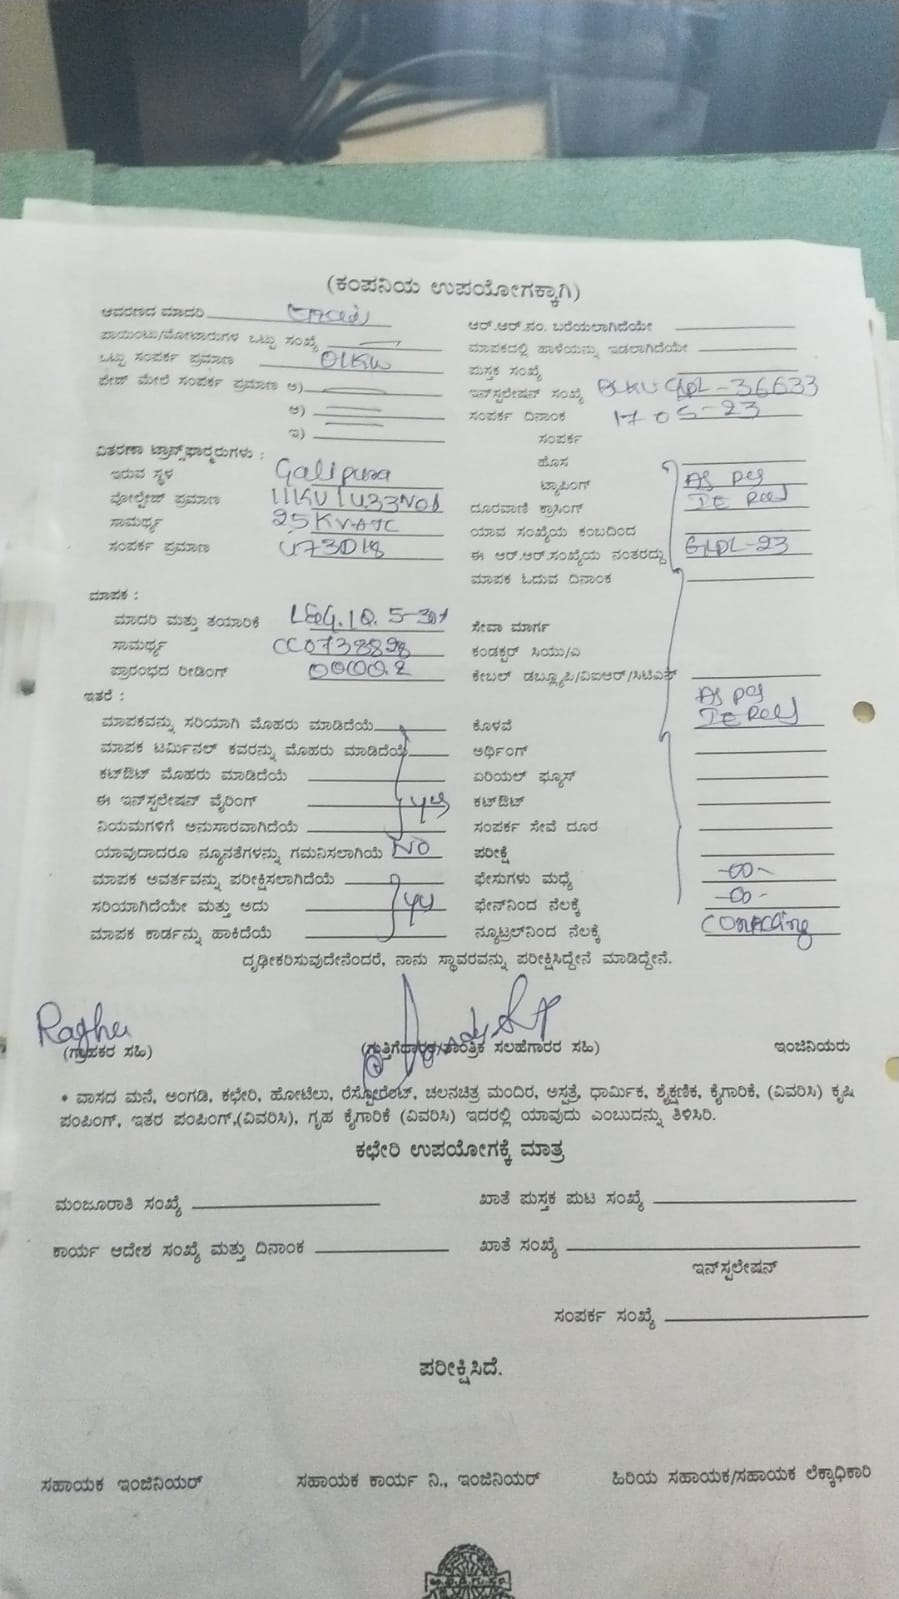 (ಕಂಪನಿಯ ಉಪಯೋಗಕ್ಕಾಗಿ)
ಆವರಣದ ಮಾದರಿ
ಪಾಯಿಂಟು/ಮೋಟಾರುಗಳ ಒಟ್ಟು ಸಂಖ್ಯೆ
ಒಟ್ಟು ಸಂಪರ್ಕ ಪ್ರಮಾಣ 01KW
ಫೇಡ್ ಮೇಲೆ ಸಂಪರ್ಕ ಪ್ರಮಾಣ ಅ)
ಆ)
ಇ)
ವಿತರಣಾ ಟ್ರಾನ್ಸ್‌ಫಾರ್ಮರುಗಳು :
ಇರುವ ಸ್ಥಳ Galipura
ವೋಲ್ಟೇಜ್ ಪ್ರಮಾಣ 11KV/433Vol
ಸಾಮರ್ಥ್ಯ 25KVATC
ಸಂಪರ್ಕ ಪ್ರಮಾಣ 473018
ಮಾಪಕ :
ಮಾದರಿ ಮತ್ತು ತಯಾರಿಕೆ L&G.1Q. 5-30A
ಸಾಮರ್ಥ್ಯ
ಪ್ರಾರಂಭದ ರೀಡಿಂಗ್ 0000.2
ಇತರೆ :
ಮಾಪಕವನ್ನು ಸರಿಯಾಗಿ ಮೊಹರು ಮಾಡಿದೆಯೆ
ಮಾಪಕ ಟರ್ಮಿನಲ್ ಕವರನ್ನು ಮೊಹರು ಮಾಡಿದೆಯೆ
ಕಟ್‌ಔಟ್ ಮೊಹರು ಮಾಡಿದೆಯೆ
ಈ ಇನ್‌ಸ್ಟಲೇಷನ್ ವೈರಿಂಗ್ yes
ನಿಯಮಗಳಿಗೆ ಅನುಸಾರವಾಗಿದೆಯೆ
ಯಾವುದಾದರೂ ನ್ಯೂನತೆಗಳನ್ನು ಗಮನಿಸಲಾಗಿಯೆ NO
ಮಾಪಕ ಅವರ್ತವನ್ನು ಪರೀಕ್ಷಿಸಲಾಗಿದೆಯೆ
ಸರಿಯಾಗಿದೆಯೇ ಮತ್ತು ಅದು yes
ಮಾಪಕ ಕಾರ್ಡನ್ನು ಹಾಕಿದೆಯೆ
ಆರ್.ಆರ್.ನಂ. ಬರೆಯಲಾಗಿದೆಯೇ
ಮಾಪಕದಲ್ಲಿ ಹಾಳೆಯನ್ನು ಇಡಲಾಗಿದೆಯೇ
ಪುಸ್ತಕ ಸಂಖ್ಯೆ
ಇನ್‌ಸ್ಟಲೇಷನ್ ಸಂಖ್ಯೆ BLKUGDL-36633
ಸಂಪರ್ಕ ದಿನಾಂಕ 17 05-23
ಸಂಪರ್ಕ
ಹೊಸ
ಟ್ಯಾಪಿಂಗ್ AS per
ದೂರವಾಣಿ ಕ್ರಾಸಿಂಗ್
ಯಾವ ಸಂಖ್ಯೆಯ ಕಂಬದಿಂದ
ಈ ಆರ್.ಆರ್.ಸಂಖ್ಯೆಯ ನಂತರದ್ದು GLDL-23
ಮಾಪಕ ಓದುವ ದಿನಾಂಕ
ಸೇವಾ ಮಾರ್ಗ
ಕಂಡಕ್ಟರ್ ಸಿಯು/ಎ
ಕೇಬಲ್ ಡಬ್ಲ್ಯೂಪಿ/ವಿಐಆರ್/ಸಿಟಿಎಸ್
AS per
ಕೊಳವೆ
ಅರ್ಥಿಂಗ್
ಏರಿಯಲ್ ಫ್ಯೂಸ್
ಕಟ್‌ಔಟ್
ಸಂಪರ್ಕ ಸೇವೆ ದೂರ
ಪರೀಕ್ಷೆ
ಫೇಸುಗಳು ಮಧ್ಯೆ -00-
ಫೇಸ್‌ನಿಂದ ನೆಲಕ್ಕೆ -00-
ನ್ಯೂಟ್ರಲ್‌ನಿಂದ ನೆಲಕ್ಕೆ
ದೃಢೀಕರಿಸುವುದೇನೆಂದರೆ, ನಾನು ಸ್ಥಾವರವನ್ನು ಪರೀಕ್ಷಿಸಿದ್ದೇನೆ ಮಾಡಿದ್ದೇನೆ.
Raghu
(ಗ್ರಾಹಕರ ಸಹಿ) (ಗುತ್ತಿಗೆದಾರರ/ತಾಂತ್ರಿಕ ಸಲಹೆಗಾರರ ಸಹಿ) ಇಂಜಿನಿಯರು
* ವಾಸದ ಮನೆ, ಅಂಗಡಿ, ಕಛೇರಿ, ಹೋಟೆಲು, ರೆಸ್ಟೋರೆಂಟ್, ಚಲನಚಿತ್ರ ಮಂದಿರ, ಅಸ್ಪತ್ರೆ, ಧಾರ್ಮಿಕ, ಶೈಕ್ಷಣಿಕ, ಕೈಗಾರಿಕೆ, (ವಿವರಿಸಿ) ಕೃಷಿ
ಪಂಪಿಂಗ್, ಇತರ ಪಂಪಿಂಗ್,(ವಿವರಿಸಿ), ಗೃಹ ಕೈಗಾರಿಕೆ (ವಿವರಿಸಿ) ಇದರಲ್ಲಿ ಯಾವುದು ಎಂಬುದನ್ನು ತಿಳಿಸಿರಿ.
ಕಛೇರಿ ಉಪಯೋಗಕ್ಕೆ ಮಾತ್ರ
ಮಂಜೂರಾತಿ ಸಂಖ್ಯೆ ಖಾತೆ ಪುಸ್ತಕ ಪುಟ ಸಂಖ್ಯೆ
ಕಾರ್ಯ ಆದೇಶ ಸಂಖ್ಯೆ ಮತ್ತು ದಿನಾಂಕ ಖಾತೆ ಸಂಖ್ಯೆ
ಇನ್‌ಸ್ಟಲೇಷನ್
ಸಂಪರ್ಕ ಸಂಖ್ಯೆ
ಪರೀಕ್ಷಿಸಿದೆ.
ಸಹಾಯಕ ಇಂಜಿನಿಯರ್ ಸಹಾಯಕ ಕಾರ್ಯ ನಿ., ಇಂಜಿನಿಯರ್ ಹಿರಿಯ ಸಹಾಯಕ/ಸಹಾಯಕ ಲೆಕ್ಕಾಧಿಕಾರಿ